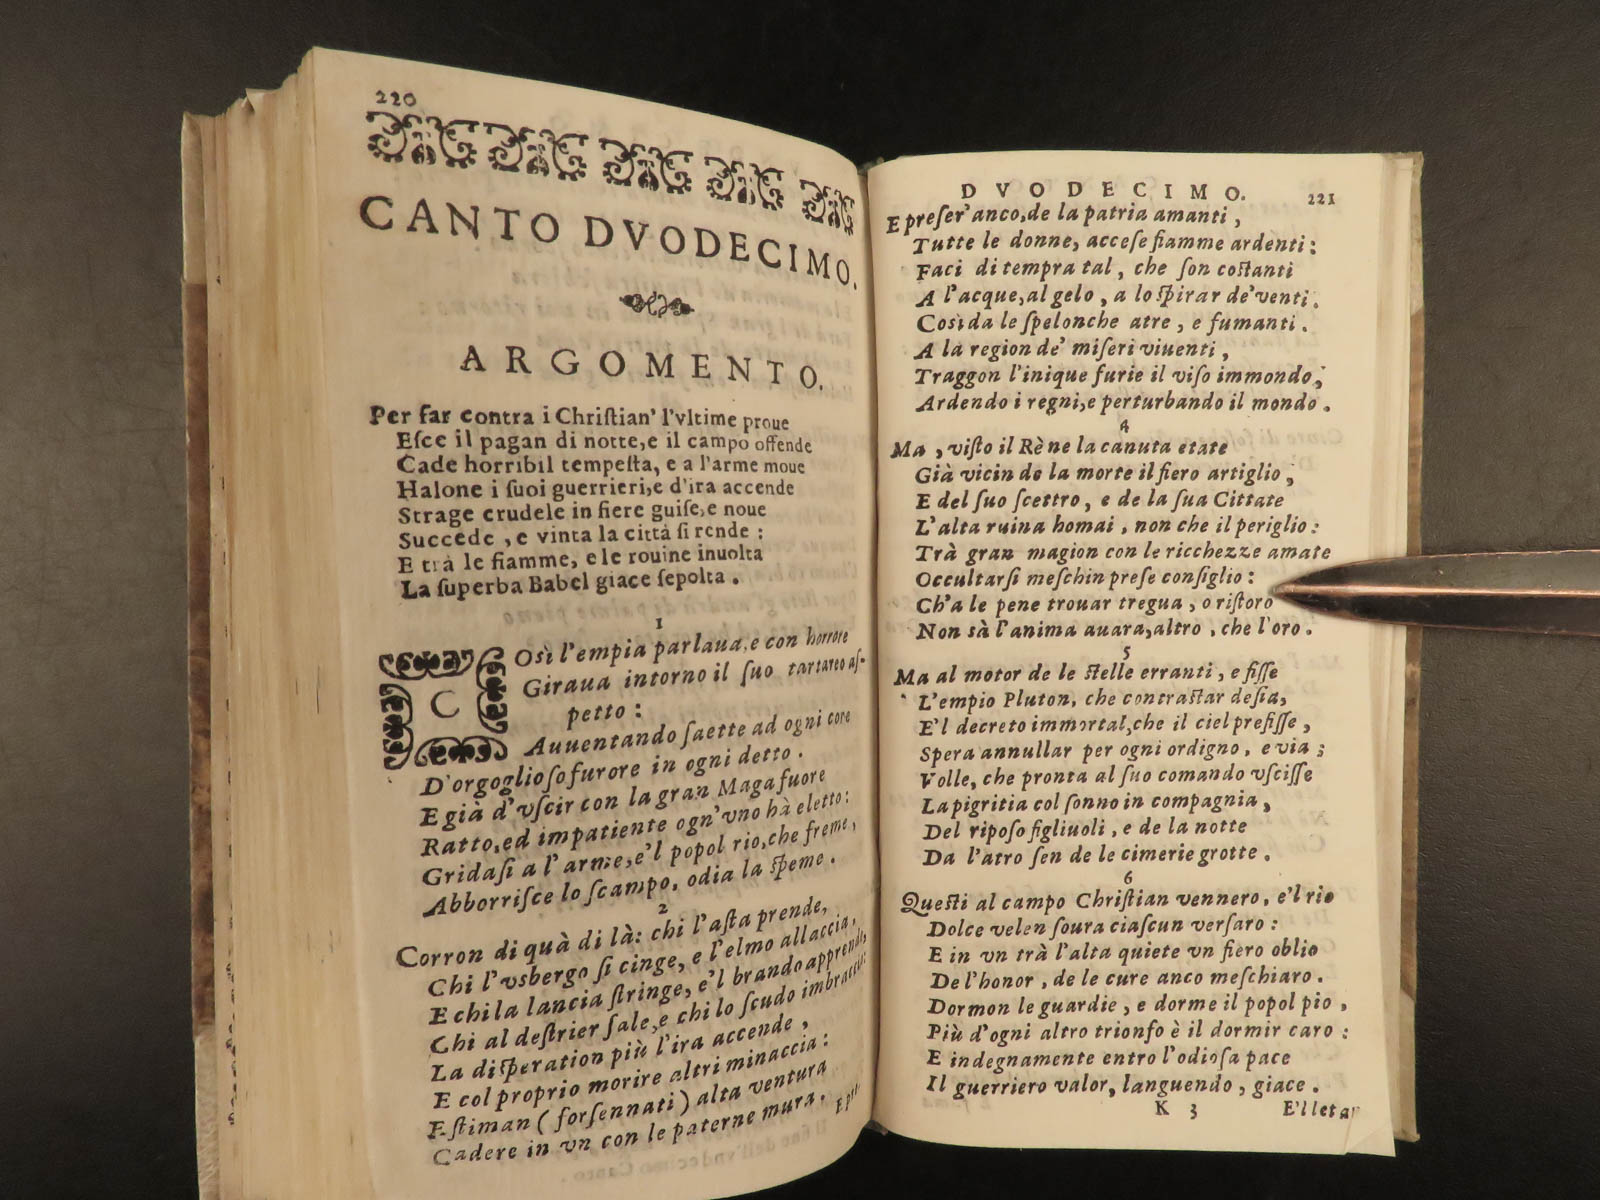 220
CANTO DVODECIMO.
ARGOMENTO.
Per far contra i Chriſtian' l'vltime proue
Eſce il pagan di notte, e il campo offende
Cade horribil tempeſta, e a l'arme moue
Halone i ſuoi guerrieri, e d'ira accende
Strage crudele in fiere guiſe, e noue
Succede, e vinta la città ſi rende:
E trà le fiamme, e le rouine inuolta
La ſuperba Babel giace ſepolta.
1
Coſì l'empia parlaua, e con horrore
Giraua intorno il ſuo tartareo aſ-
petto:
Auuentando ſaette ad ogni core
D'orgoglioſo furore in ogni detto.
E già d'vſcir con la gran Maga fuore
Ratto, ed impatiente ogn'vno hà eletto:
Gridaſi a l'arme, e'l popol rio, che freme,
Abborriſce lo ſcampo, odia la ſpeme.
2
Corron di quà di là: chi l'aſta prende,
Chi l'vsbergo ſi cinge, e l'elmo allaccia,
E chi la lancia ſtringe, e'l brando apprende,
Chi al deſtrier ſale, e chi lo ſcudo imbraccia:
La diſperation più l'ira accende,
E col proprio morire altri minaccia:
Eſtiman (forſennati) alta ventura
Cadere in vn con le paterne mura.
E pre-
DVODECIMO.
221
E preſer' anco, de la patria amanti,
Tutte le donne, acceſe fiamme ardenti:
Faci di tempra tal, che ſon coſtanti
A l'acque, al gelo, a lo ſpirar de' venti.
Così da le ſpelonche atre, e fumanti.
A la region de' miſeri viuenti,
Traggon l'inique furie il viſo immondo,
Ardendo i regni, e perturbando il mondo.
4
Ma, viſto il Rè ne la canuta etate
Già vicin de la morte il fiero artiglio,
E del ſuo ſcettro, e de la ſua Cittate
L'alta ruina homai, non che il periglio:
Trà gran magion con le ricchezze amate
Occultarſi meſchin preſe conſiglio:
Ch'a le pene trouar tregua, o riſtoro
Non sà l'anima auara, altro, che l'oro.
5
Ma al motor de le ſtelle erranti, e fiſſe
L'empio Pluton, che contraſtar deſia,
E'l decreto immortal, che il ciel prefiſſe,
Spera annullar per ogni ordigno, e via;
Volle, che pronta al ſuo comando vſciſſe
La pigritia col ſonno in compagnia,
Del ripoſo figliuoli, e de la notte
Da l'atro ſen de le cimerie grotte.
6
Queſti al campo Chriſtian vennero, e'l rio
Dolce velen ſoura ciaſcun verſaro:
E in vn trà l'alta quiete vn fiero oblio
De l'honor, de le cure anco meſchiaro.
Dormon le guardie, e dorme il popol pio,
Più d'ogni altro trionfo è il dormir caro:
E indegnamente entro l'odioſa pace
Il guerriero valor, languendo, giace.
K 3